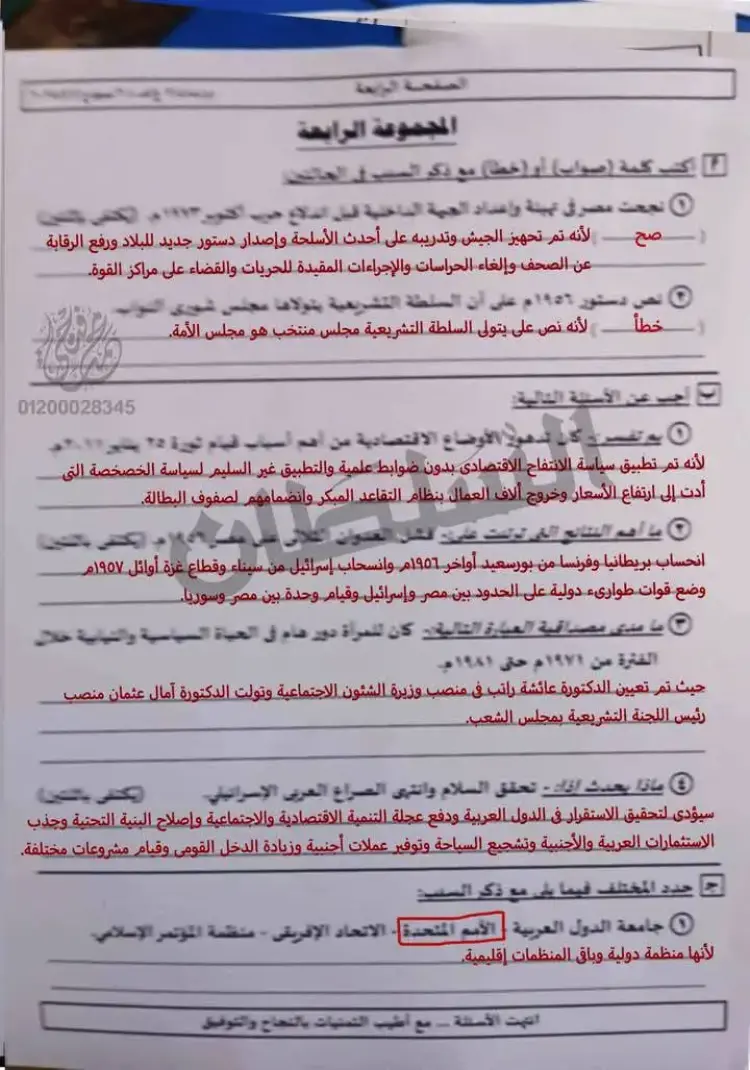 الصفحة الرابعة
المجموعة الرابعة
أ اكتب كلمة (صواب) أو (خطأ) مع ذكر السبب فى الحالتين:
١ نجحت مصر فى تهيئة وإعداد الجبهة الداخلية قبل اندلاع حرب أكتوبر ١٩٧٣م. (يكتفى بالنتين)
( صح ) لأنه تم تجهيز الجيش وتدريبه على أحدث الأسلحة وإصدار دستور جديد للبلاد ورفع الرقابة
عن الصحف وإلغاء الحراسات والإجراءات المقيدة للحريات والقضاء على مراكز القوة.
٢ نص دستور ١٩٥٦م على أن السلطة التشريعية يتولاها مجلس شورى النواب.
( خطأ ) لأنه نص على يتولى السلطة التشريعية مجلس منتخب هو مجلس الأمة.
01200028345
ب أجب عن الأسئلة التالية:
١ بم تفسر:- كان تدهور الأوضاع الاقتصادية من أهم أسباب قيام ثورة ٢٥ يناير ٢٠١١م.
لأنه تم تطبيق سياسة الانتفاح الاقتصادى بدون ضوابط علمية والتطبيق غير السليم لسياسة الخصخصة التى
أدت إلى ارتفاع الأسعار وخروج ألاف العمال بنظام التقاعد المبكر وانضمامهم لصفوف البطالة.
السلطان
٢ ما أهم النتائج التى ترتبت على:- فشل العدوان الثلاثى على مصر ١٩٥٦م. (يكتفى بالنتين)
انحساب بريطانيا وفرنسا من بورسعيد أواخر ١٩٥٦م وانسحاب إسرائيل من سيناء وقطاع غزة أوائل ١٩٥٧م
وضع قوات طوارىء دولية على الحدود بين مصر وإسرائيل وقيام وحدة بين مصر وسوريا.
٣ ما مدى مصداقية العبارة التالية:- كان للمرأة دور هام فى الحياة السياسية والنيابية خلال
الفترة من ١٩٧١م حتى ١٩٨١م.
حيث تم تعيين الدكتورة عائشة راتب فى منصب وزيرة الشئون الاجتماعية وتولت الدكتورة آمال عثمان منصب
رئيس اللجنة التشريعية بمجلس الشعب.
٤ ماذا يحدث إذا:- تحقق السلام وانتهى الصراع العربى الإسرائيلى. (يكتفى بالنتين)
سيؤدى لتحقيق الاستقرار فى الدول العربية ودفع عجلة التنمية الاقتصادية والاجتماعية وإصلاح البنية التحتية وجذب
الاستثمارات العربية والأجنبية وتشجيع السياحة وتوفير عملات أجنبية وزيادة الدخل القومى وقيام مشروعات مختلفة.
ج حدد المختلف فيما يلى مع ذكر السبب:
١ جامعة الدول العربية - الأمم المتحدة - الاتحاد الإفريقى - منظمة المؤتمر الإسلامى.
لأنها منظمة دولية وباقى المنظمات إقليمية.
انتهت الأسئلة ... مع أطيب التمنيات بالنجاح والتوفيق